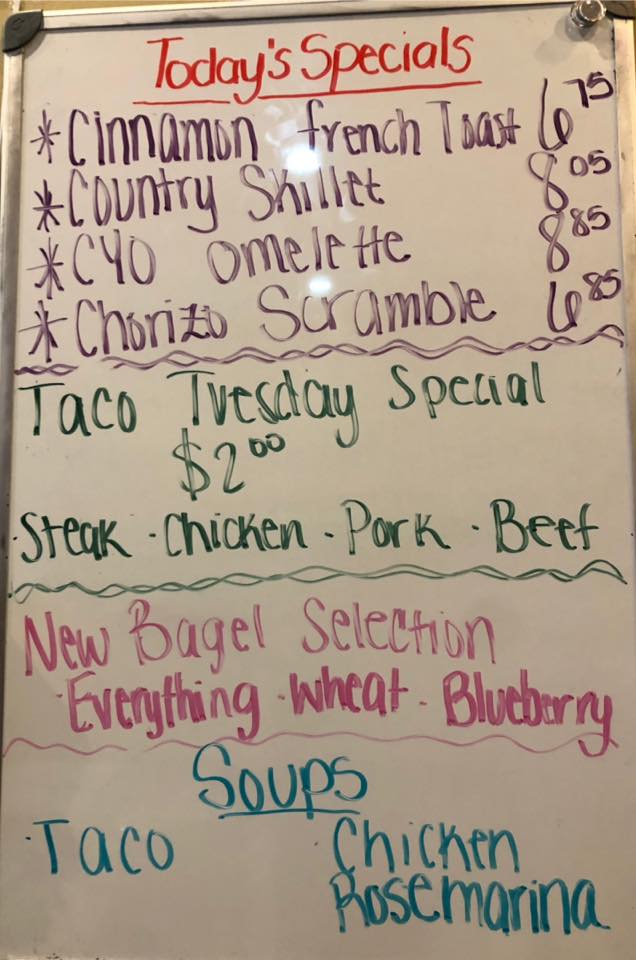 Today's Specials
*Cinnamon french Toast 6.75
*Country Skillet 8.05
*CYO omelette 8.85
*Chorizo Scramble 6.85
Taco Tuesday Special
$2.00
·Steak ·Chicken ·Pork ·Beef
New Bagel Selection
·Everything ·Wheat ·Blueberry
Soups
·Taco ·Chicken
Rosemarina